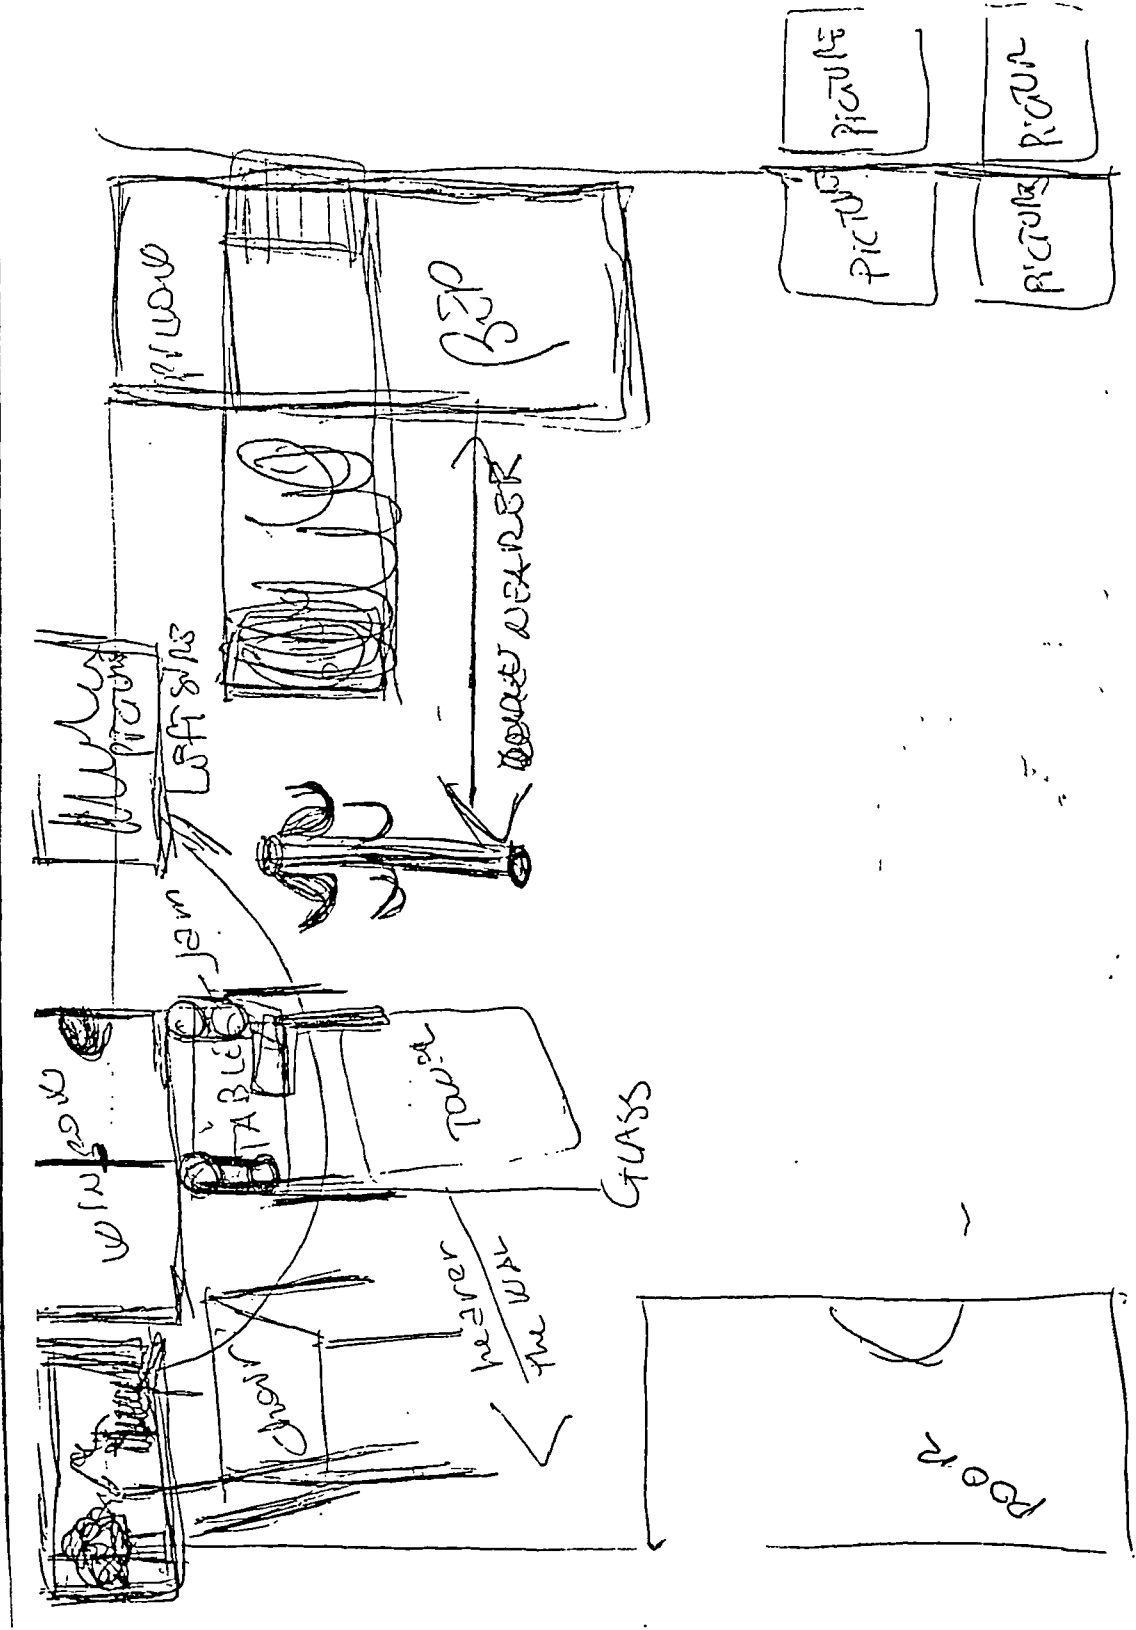 PICTURE
PICTUR
PICTURE
PICTURE
PILLOW
BED
NEARER
LEFT SIDE
Jam
WINDOW
TABLE
TOWEL
GLASS
nearer
the WAL
Chair
DOOR